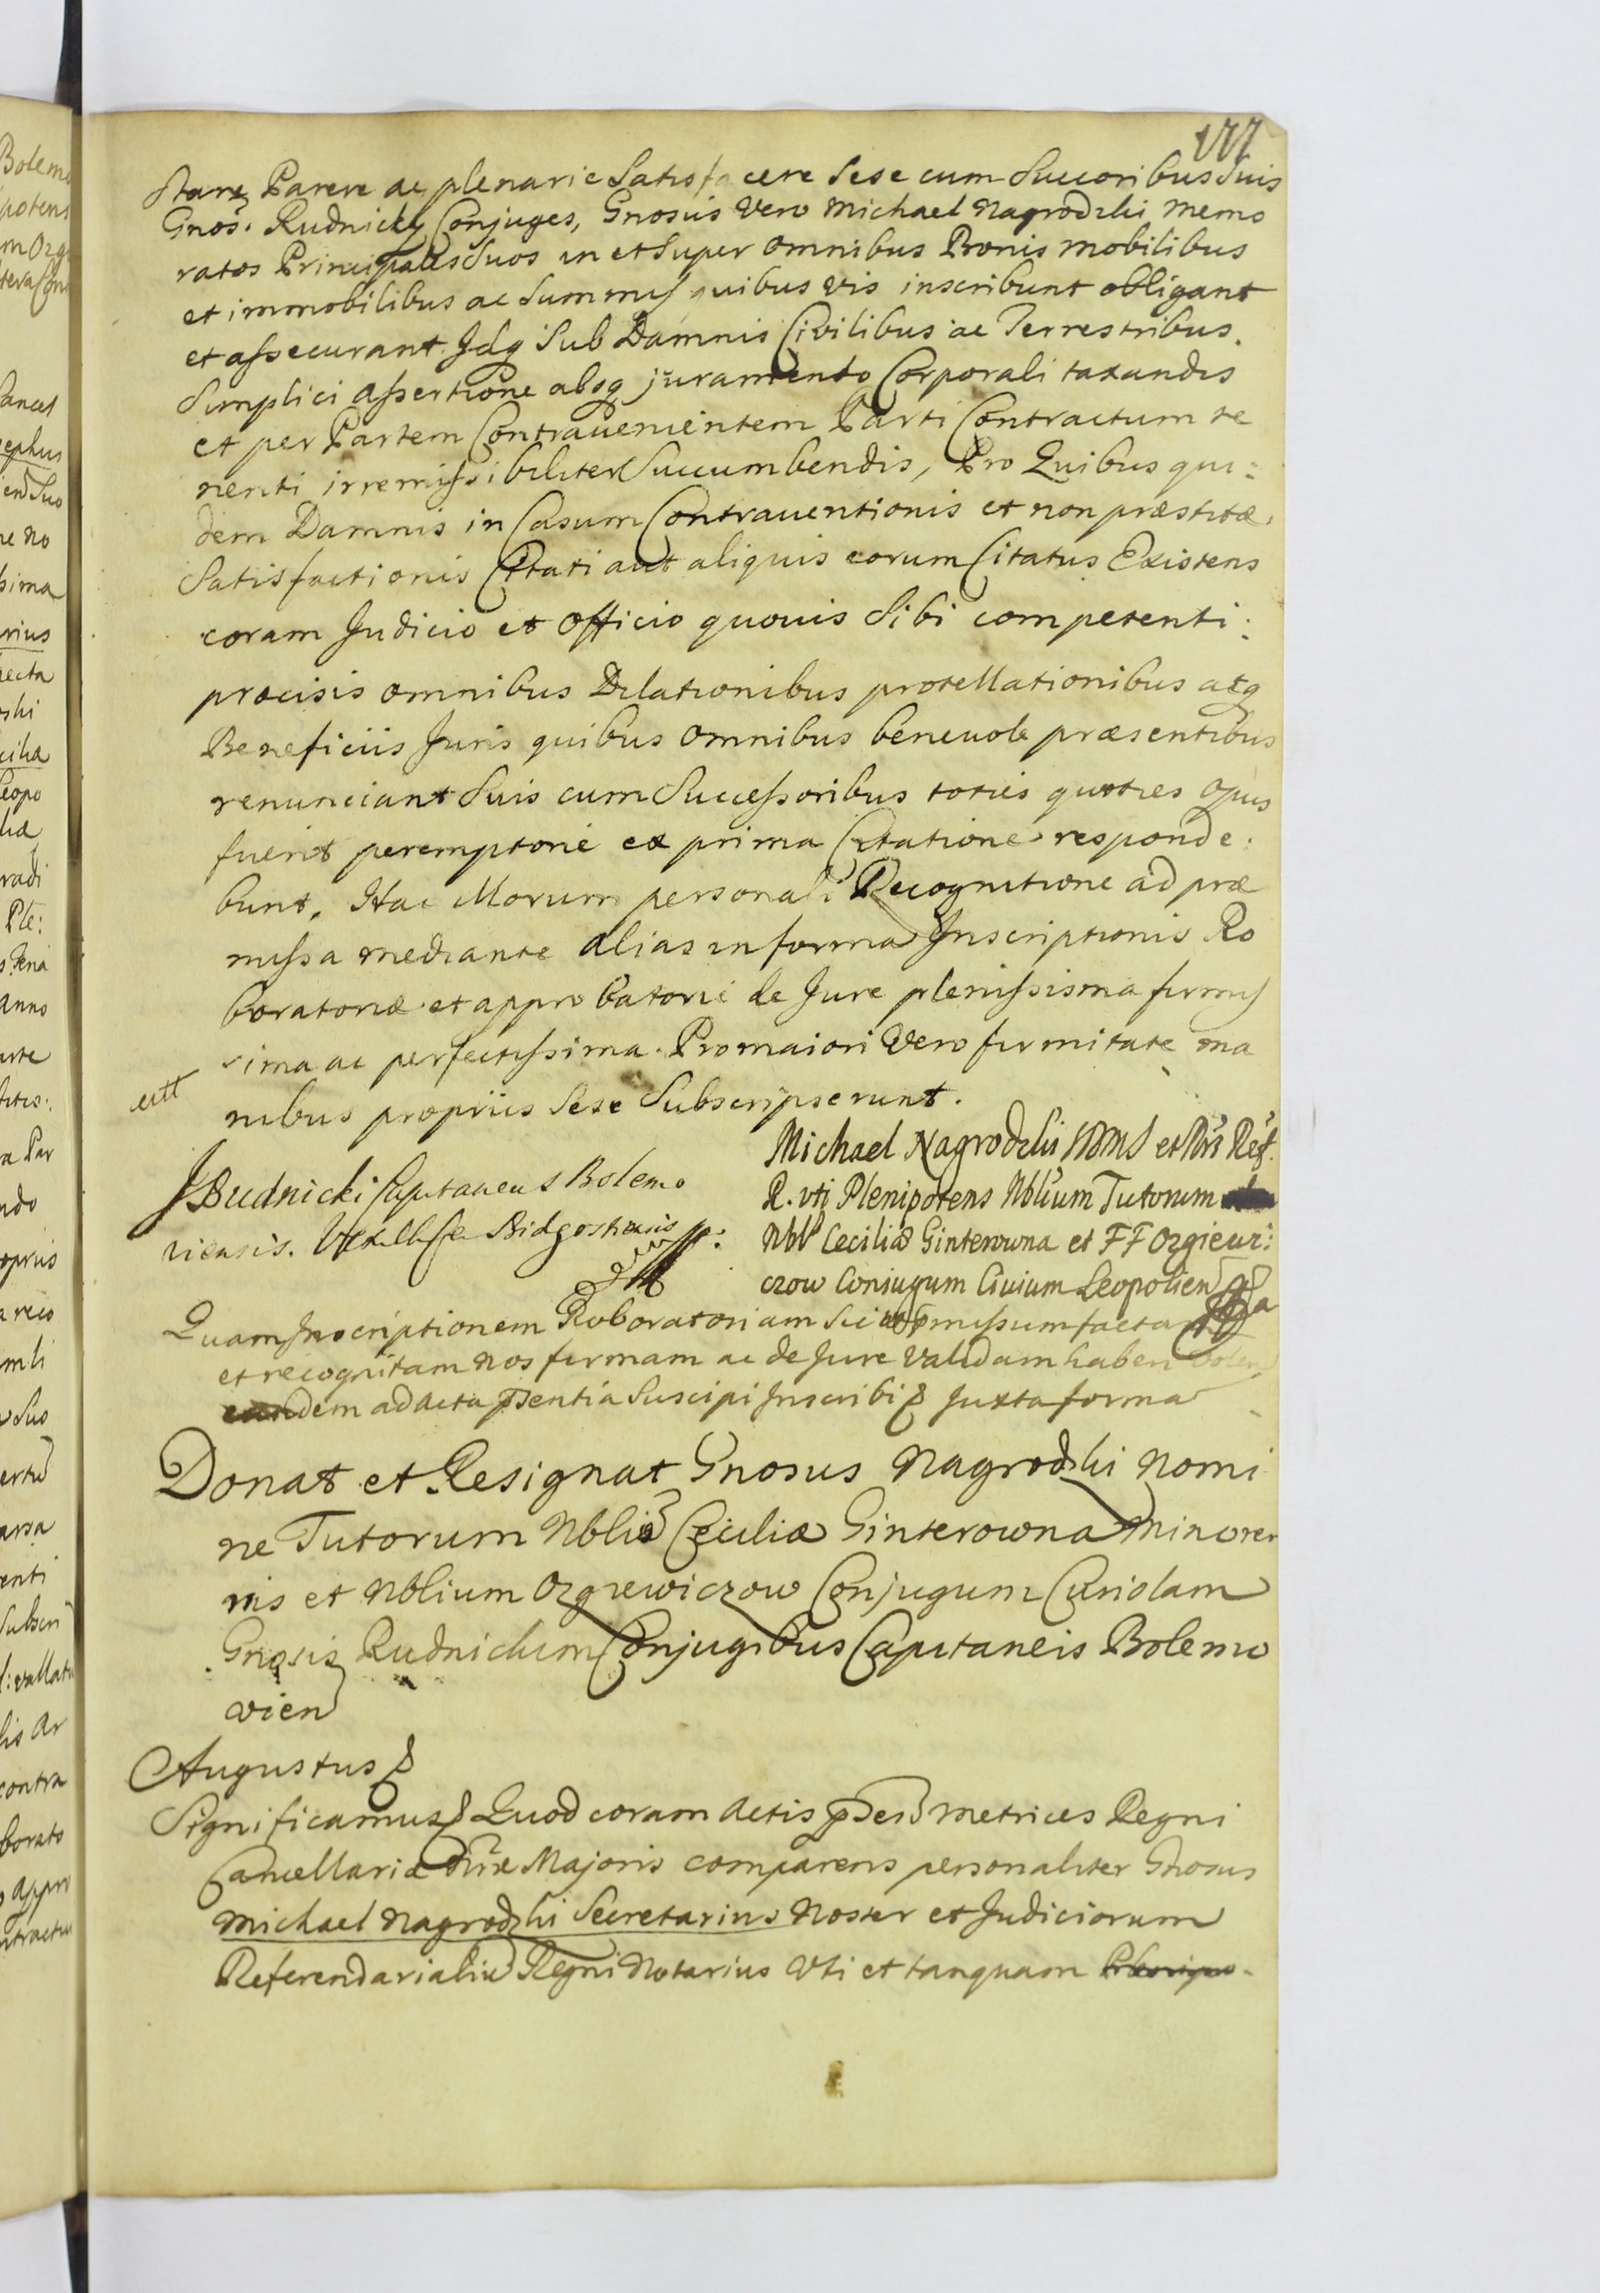 177
Stare Parere ac plenarie Satisfacere Sese cum Succoribus Suis
Gnos. Rudnicky Conjuges, Gnosus Vero Michael Nagrodzki memo
ratos Principales Suos in et Super omnibus Bonis mobilibus
et immobilibus ac Summis quibus vis inscribunt obligant
et assecurant. Idq Sub Damnis Civilibus ac Terrestribus.
Simplici assertione absq juramento Corporali taxandis
et per Partem Contravenientem Parti Contractum te
nenti irremissibiliter Succumbendis, Pro Quibus qui:
dem Damnis in Casum Contrauentionis et non præstitæ
Satisfactionis Citati aut aliquis eorum Citatus Existens
coram Judicio et officio quouis Sibi competenti:
præcisis omnibus Dilationibus protellationibus atq
Beneficiis Juris quibus omnibus beneuole præsentibus
renunciant Suis cum Successoribus toties quoties opus
fuerit peremptorie ex prima Citatione responde:
bunt. Hac Illorum personali Recognitione ad præ
missa mediante alias in forma Inscriptionis Ro
boratoriæ et approbatoriæ de Jure plenissima firmis
sima ac perfectissima. Pro maiori Vero firmitate ma
nibus propriis Sese Subscripserunt.
Michael Nagrodzki et
R. vti Plenipotens Nblium Tutorum
Nbl Ceciliæ Ginterowna et FF Orgiewi:
czow Coniugum Ciuium Leopolien
J Rudnicki Capitaneus Bolemo
viensis. Bidgostiensis
Quam Inscriptionem Roboratoriam Sic ut pmissum factam
et recognitam nos firmam ac de Jure validam haberi volen
eandem ad acta psentia Suscipi Inscribi Juxta forma
Donat et Resignat Gnosus Nagrodzki nomi
ne Tutorum Nblis Ceciliæ Ginterowna minoren
nis et Nblium Orgiewiczow Conjugum Curiolam
Gnosis Rudnickim Conjugibus Capitaneis Bolemo
vien
Augustus
Significamus Quod coram Actis psen Metrices Regni
Cancellariæ nræ Majoris comparens personaliter Gnosus
Michael Nagrodzki Secretarius Noster et Judiciorum
Referendarialiu Regni Notarius Vti et tanquam